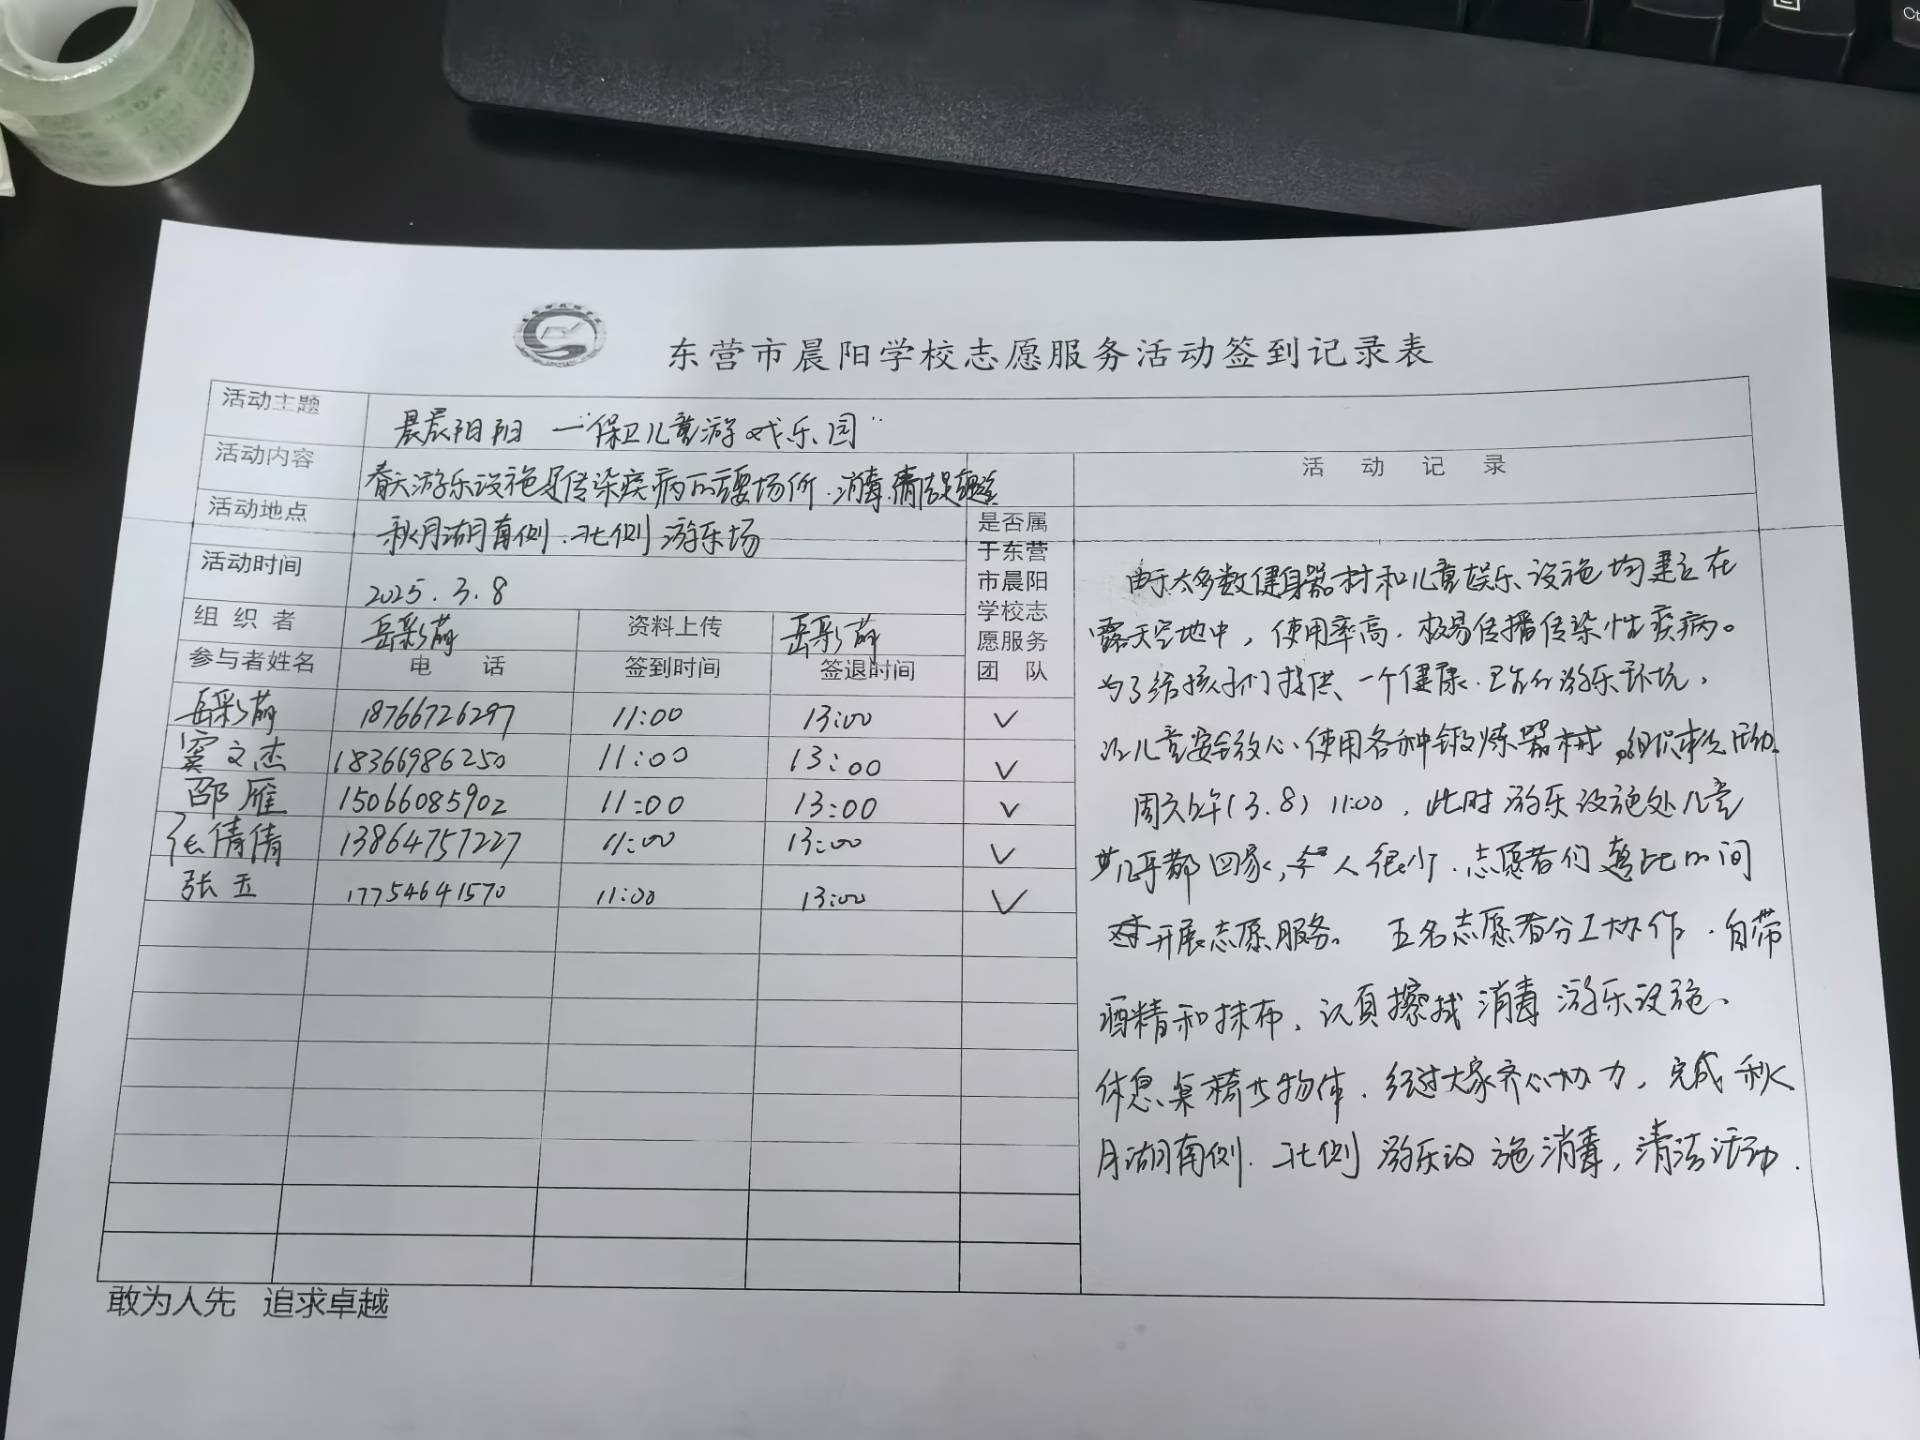 Ct
东营市晨阳学校志愿服务活动签到记录表
活动主题 晨晨阳阳 一"保卫儿童游戏乐园"
活动内容 春天游乐设施是传染疾病的重要场所.消毒.清洁是
活动地点 秋月湖南侧.北侧游乐场
活动时间 2025.3.8
组 织 者 岳彩萌 资料上传 岳彩萌
参与者姓名 电 话 签到时间 签退时间
是否属
于东营
市晨阳
学校志
愿服务
团 队
岳彩萌 18766726297 11:00 13:00 ✓
窦文杰 18366986250 11:00 13:00 ✓
邵雁 15066085902 11:00 13:00 ✓
张倩倩 13864757227 11:00 13:00 ✓
张玉 17754641570 11:00 13:00 ✓
活 动 记 录
由于大多数健身器材和儿童娱乐设施均建立在
露天空地中，使用率高.极易传播传染性疾病。
为了给孩子们提供、一个健康.卫生的游乐环境，
让儿童安全放心、使用各种锻炼器材，组织本次活动.
周六上午(3.8) 11:00，此时游乐设施处儿童
几乎都回家，人很少.志愿者们趁此时间
开展志愿服务。 五名志愿者分工协作.自带
酒精和抹布、认真擦拭消毒游乐设施、
休息桌椅等物体.经过大家齐心协力，完成秋
月湖南侧.北侧游乐设施消毒，清洁活动.
敢为人先 追求卓越